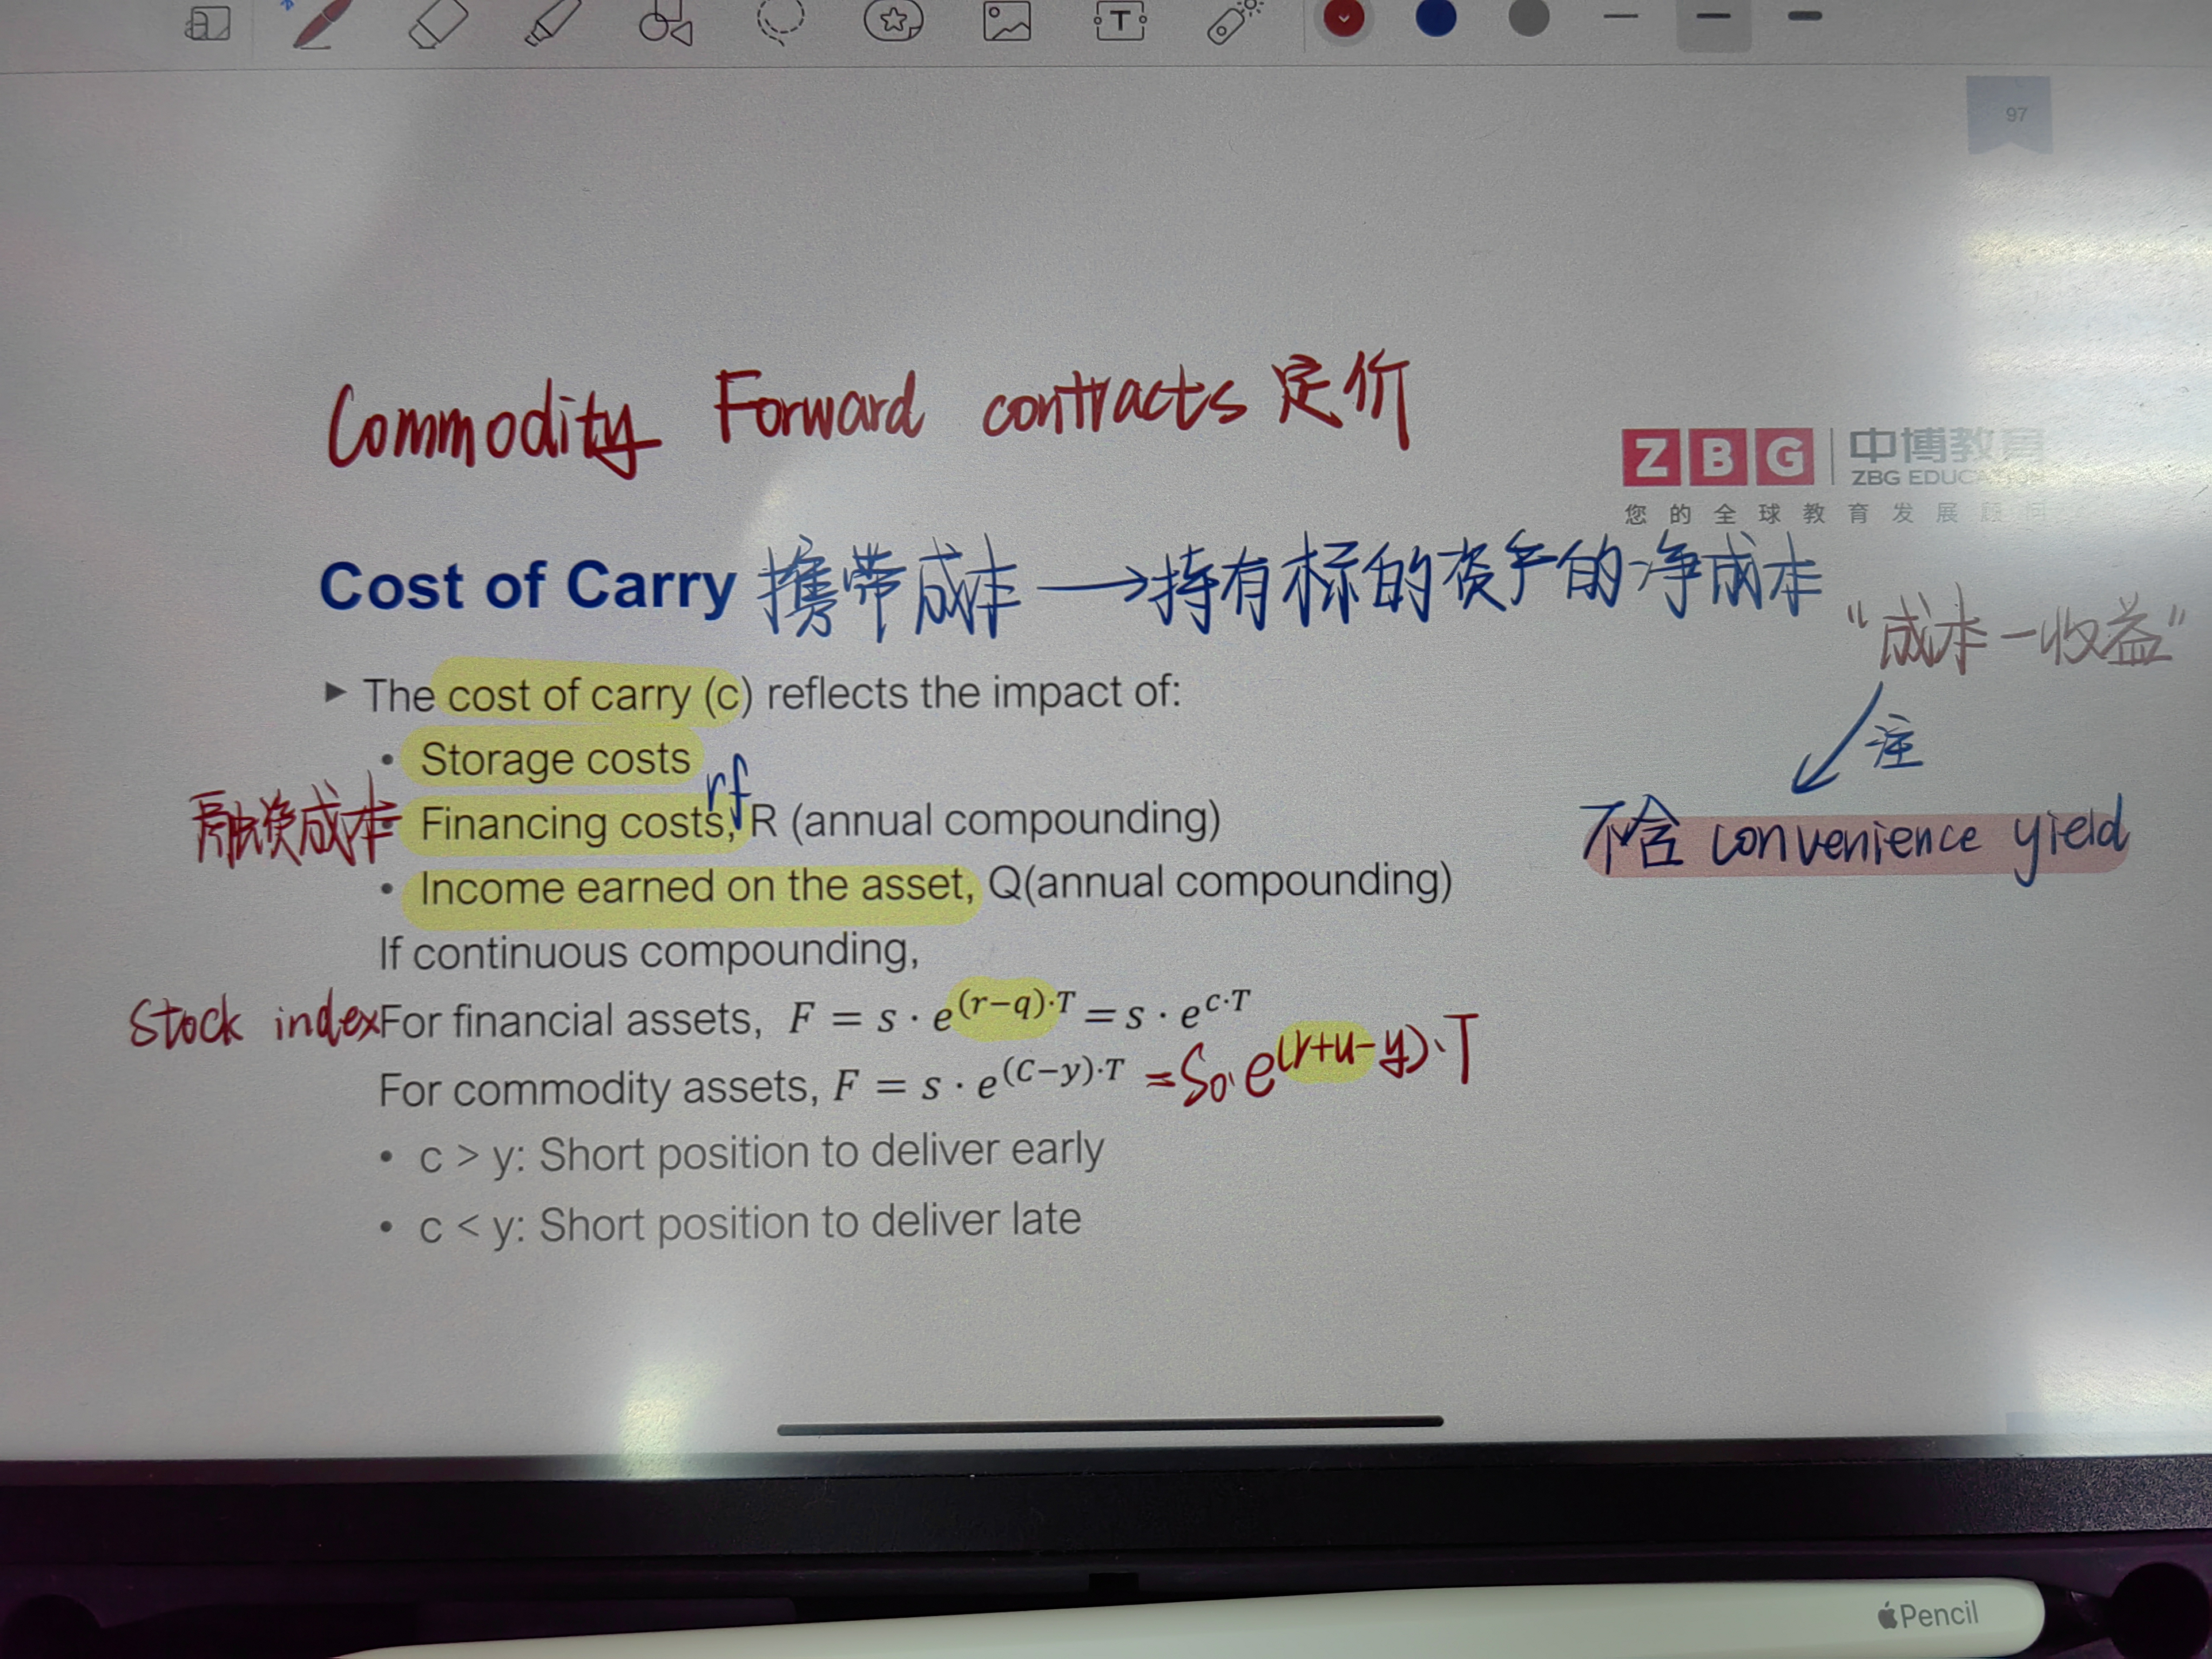 97
Commodity Forward contracts 定价
ZBG 中博教育
ZBG EDUCATION
您的全球教育发展顾问
Cost of Carry 携带成本 → 持有标的资产的净成本
“成本－收益”
▶ The cost of carry (c) reflects the impact of:
注
• Storage costs
rf
融资成本 • Financing costs, R (annual compounding)
不含 convenience yield
• Income earned on the asset, Q(annual compounding)
If continuous compounding,
Stock index For financial assets, F = s · e^(r−q)·T = s · e^c·T
For commodity assets, F = s · e^(C−y)·T = S₀· e^(r+u−y)·T
• c > y: Short position to deliver early
• c < y: Short position to deliver late
Pencil